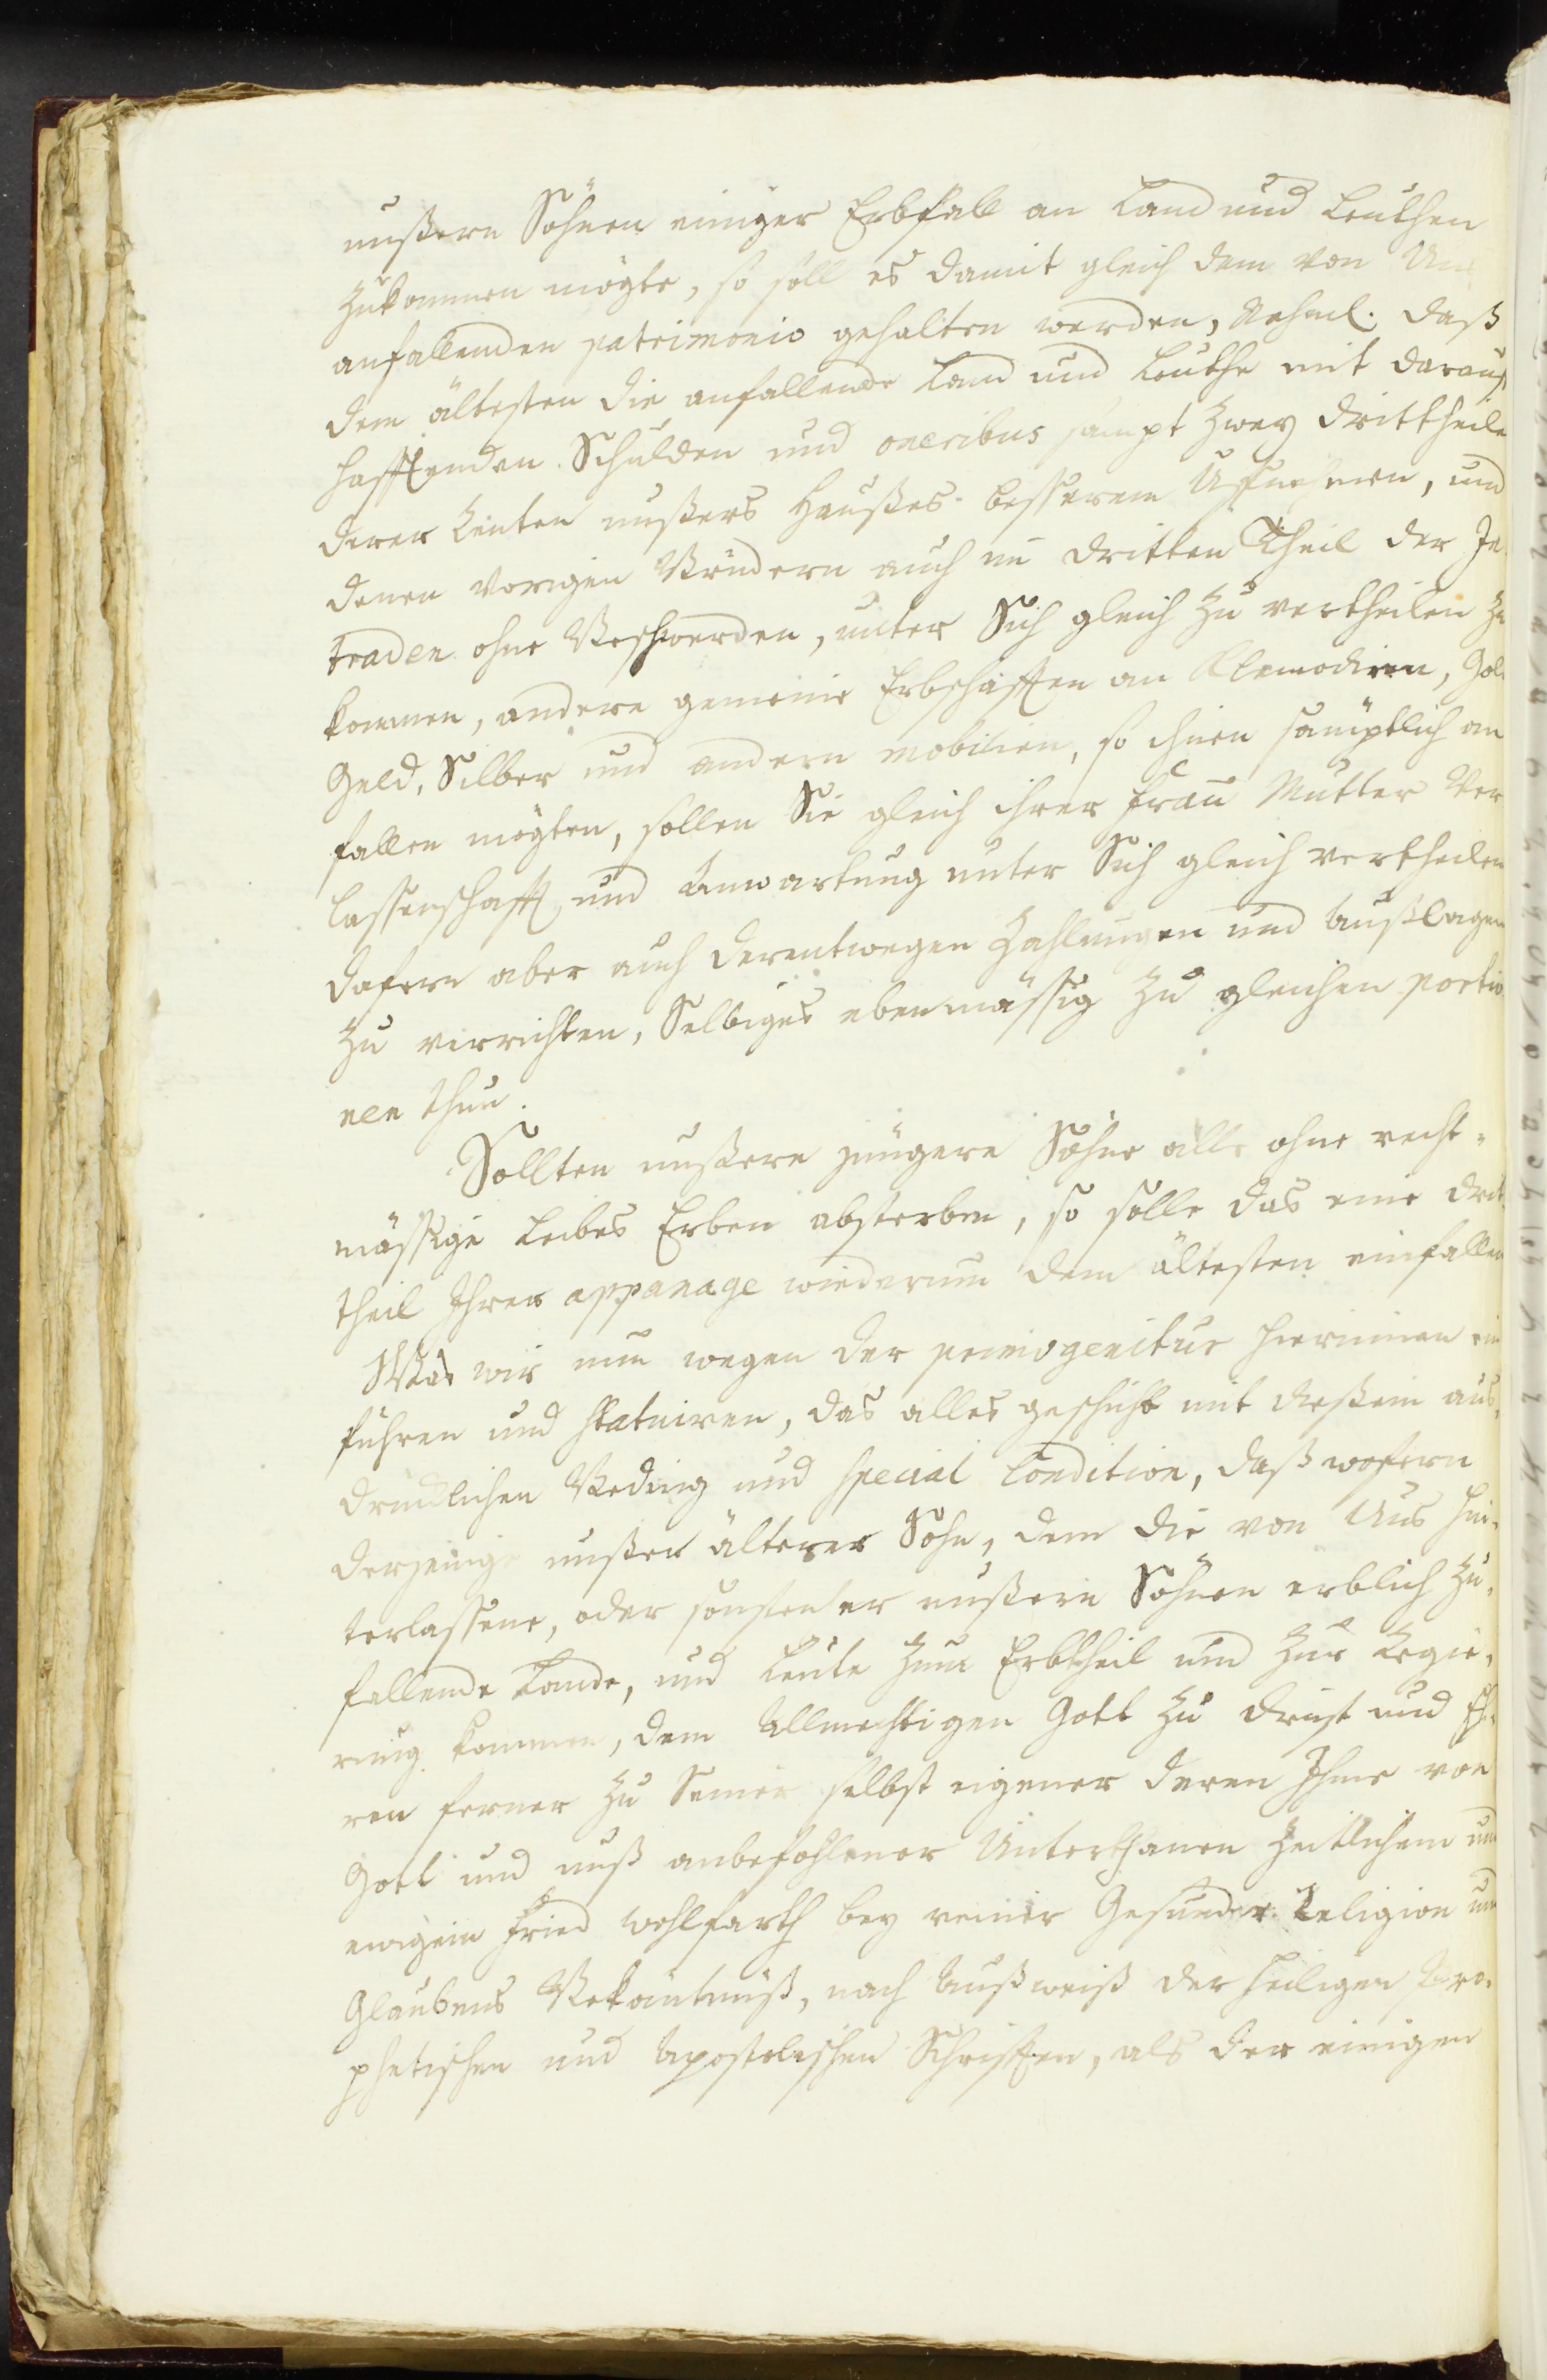 unßern Söhnen einiger Erbfall an Land und Leuthen
zukommen mögte, so soll es damit gleich dem von Uns
anfallenden patrimonio gehalten werden, Nehml. daß
dem ältesten die anfallende Land und Leuthe mit darauf
hafftenden Schulden und oneribus sampt zwey drittheile
derer Renten unßers Haußes besserem Ufnehmen, und
denen vorigen Brüdern auch im dritten Theil der In
traden ohne Beschwerden, unter Sich gleich zu vertheilen zu
kommen, andere gemeine Erbschafften an Klemodien, Gold
Geld, Silber und andern mobilien, so ihnen sämptlich an
fallen mögten, sollen Sie gleich ihrer Frau Mutter Ver
lassenschafft und Anwartung unter Sich gleich vertheilen
dafern aber auch derentwegen Zahlungen und Außlagen
zu verrichten, Selbiges ebenmässig zu gleichen portio
nen thun.
Sollten unßere jüngere Söhne alle ohne recht-
mässige Leibes Erben absterben, so solle das eine drit
theil Ihrer appanage wiederum dem ältesten einfallen
Was wir nun wegen der primogenitur hierinnen ein
führen und statuiren, das alles geschicht mit dießem aus,
drücklichen Beding und special Condition, daß wofern
derjenige unßer älterer Sohn, dem die von Uns hin-
terlassene, oder sonsten er unßern Söhnen erblich zu,
fallende Lande, und Leute zum Erbtheil und zur Regie,
rung kommen, dem Allmechtigen Gott zu dinst und Eh-
ren ferner zu Seiner selbst eigener deren Ihme von
Gott und unß anbefohlener Unterthanen zeitlichem und
ewigem Fried wohlfarth bey reiner Gesunder Religion und
Glaubens Bekäntnüß, nach Außweiß der heiligen Pro-
phetischen und Apostolischen Schrifften, als der einigen